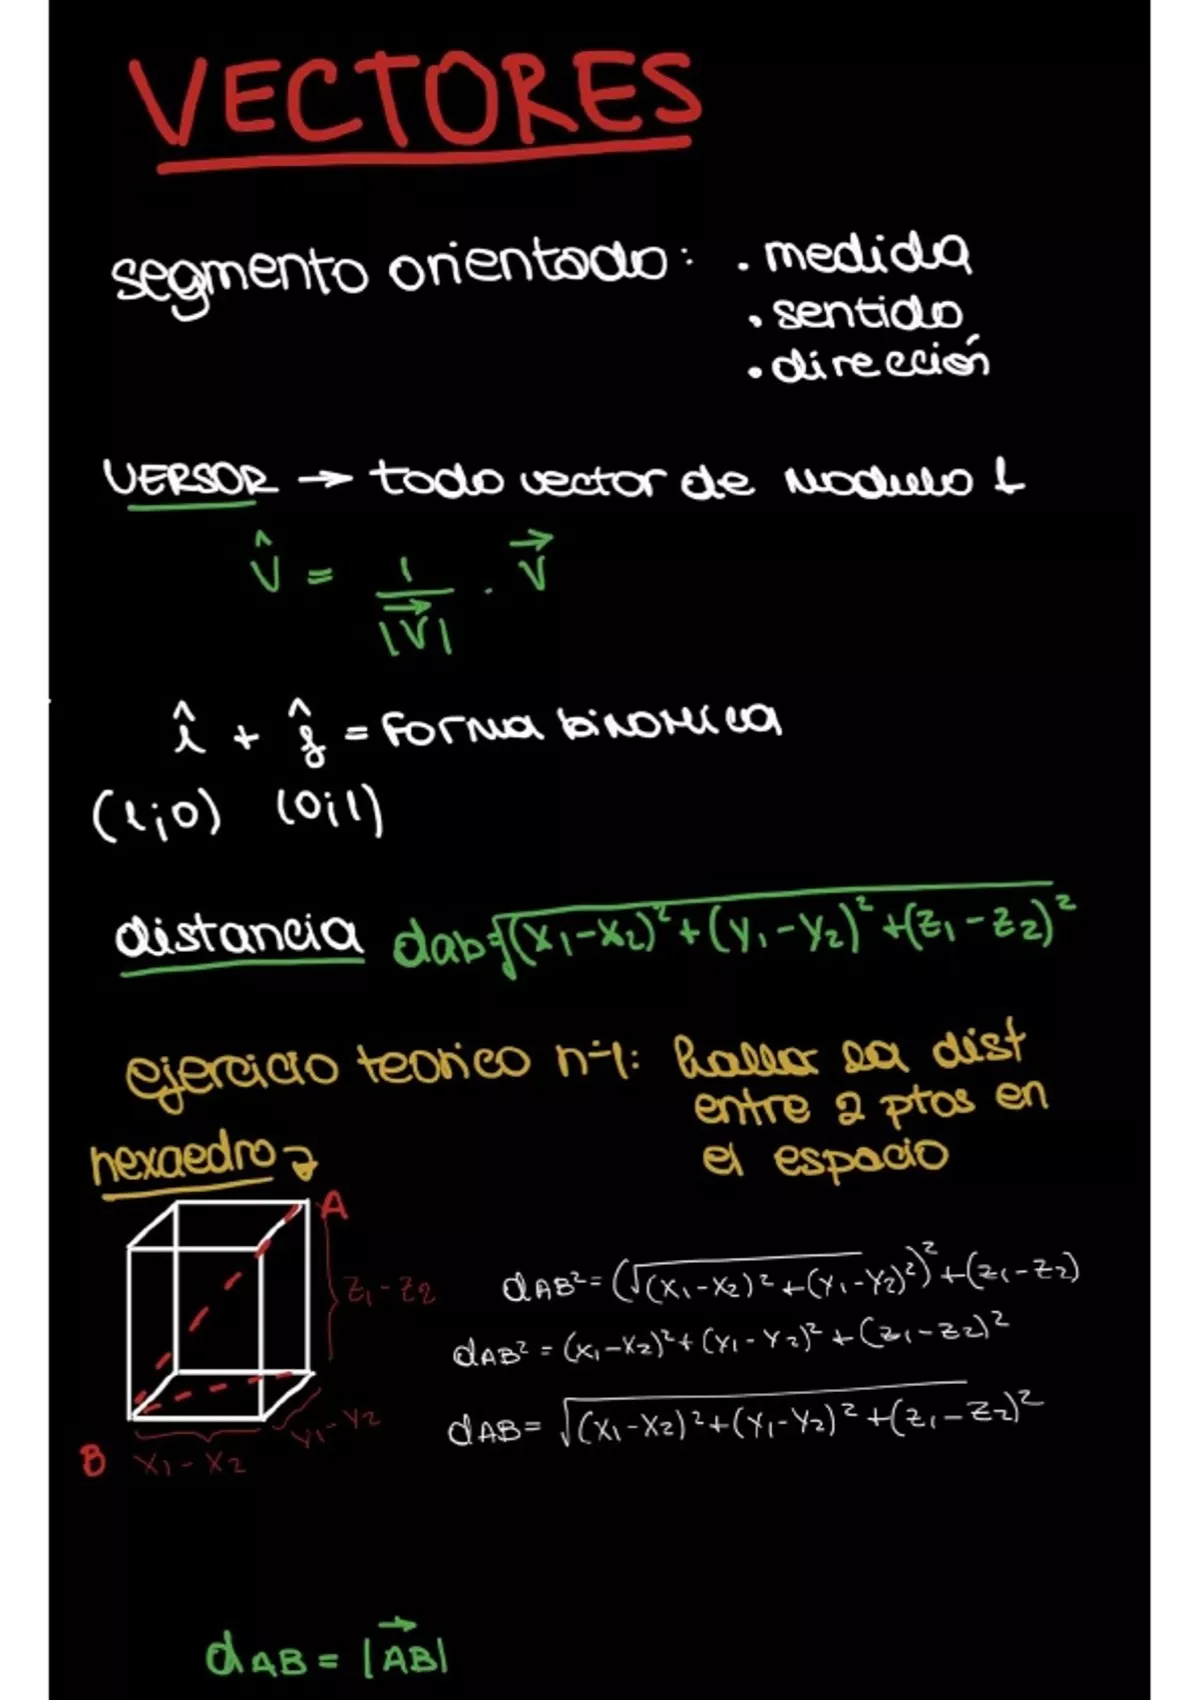 VECTORES
segmento orientado: . medida
. sentido
. dirección
VERSOR → todo vector de modulo 1
v̂ = 1/|v⃗| . v⃗
î + ĵ = forma binomica
(1;0) (0;1)
distancia dab=√(x₁-x₂)²+(y₁-y₂)²+(z₁-z₂)²
ejercicio teorico n°1: hallar la dist
entre 2 ptos en
el espacio
hexaedro
A
z₁-z₂
dAB²=(√(x₁-x₂)²+(y₁-y₂)²)²+(z₁-z₂)
dAB² = (x₁-x₂)²+(y₁-y₂)²+(z₁-z₂)²
dAB= √(x₁-x₂)²+(y₁-y₂)²+(z₁-z₂)²
y₁-y₂
B x₁-x₂
dAB = |A⃗B⃗|